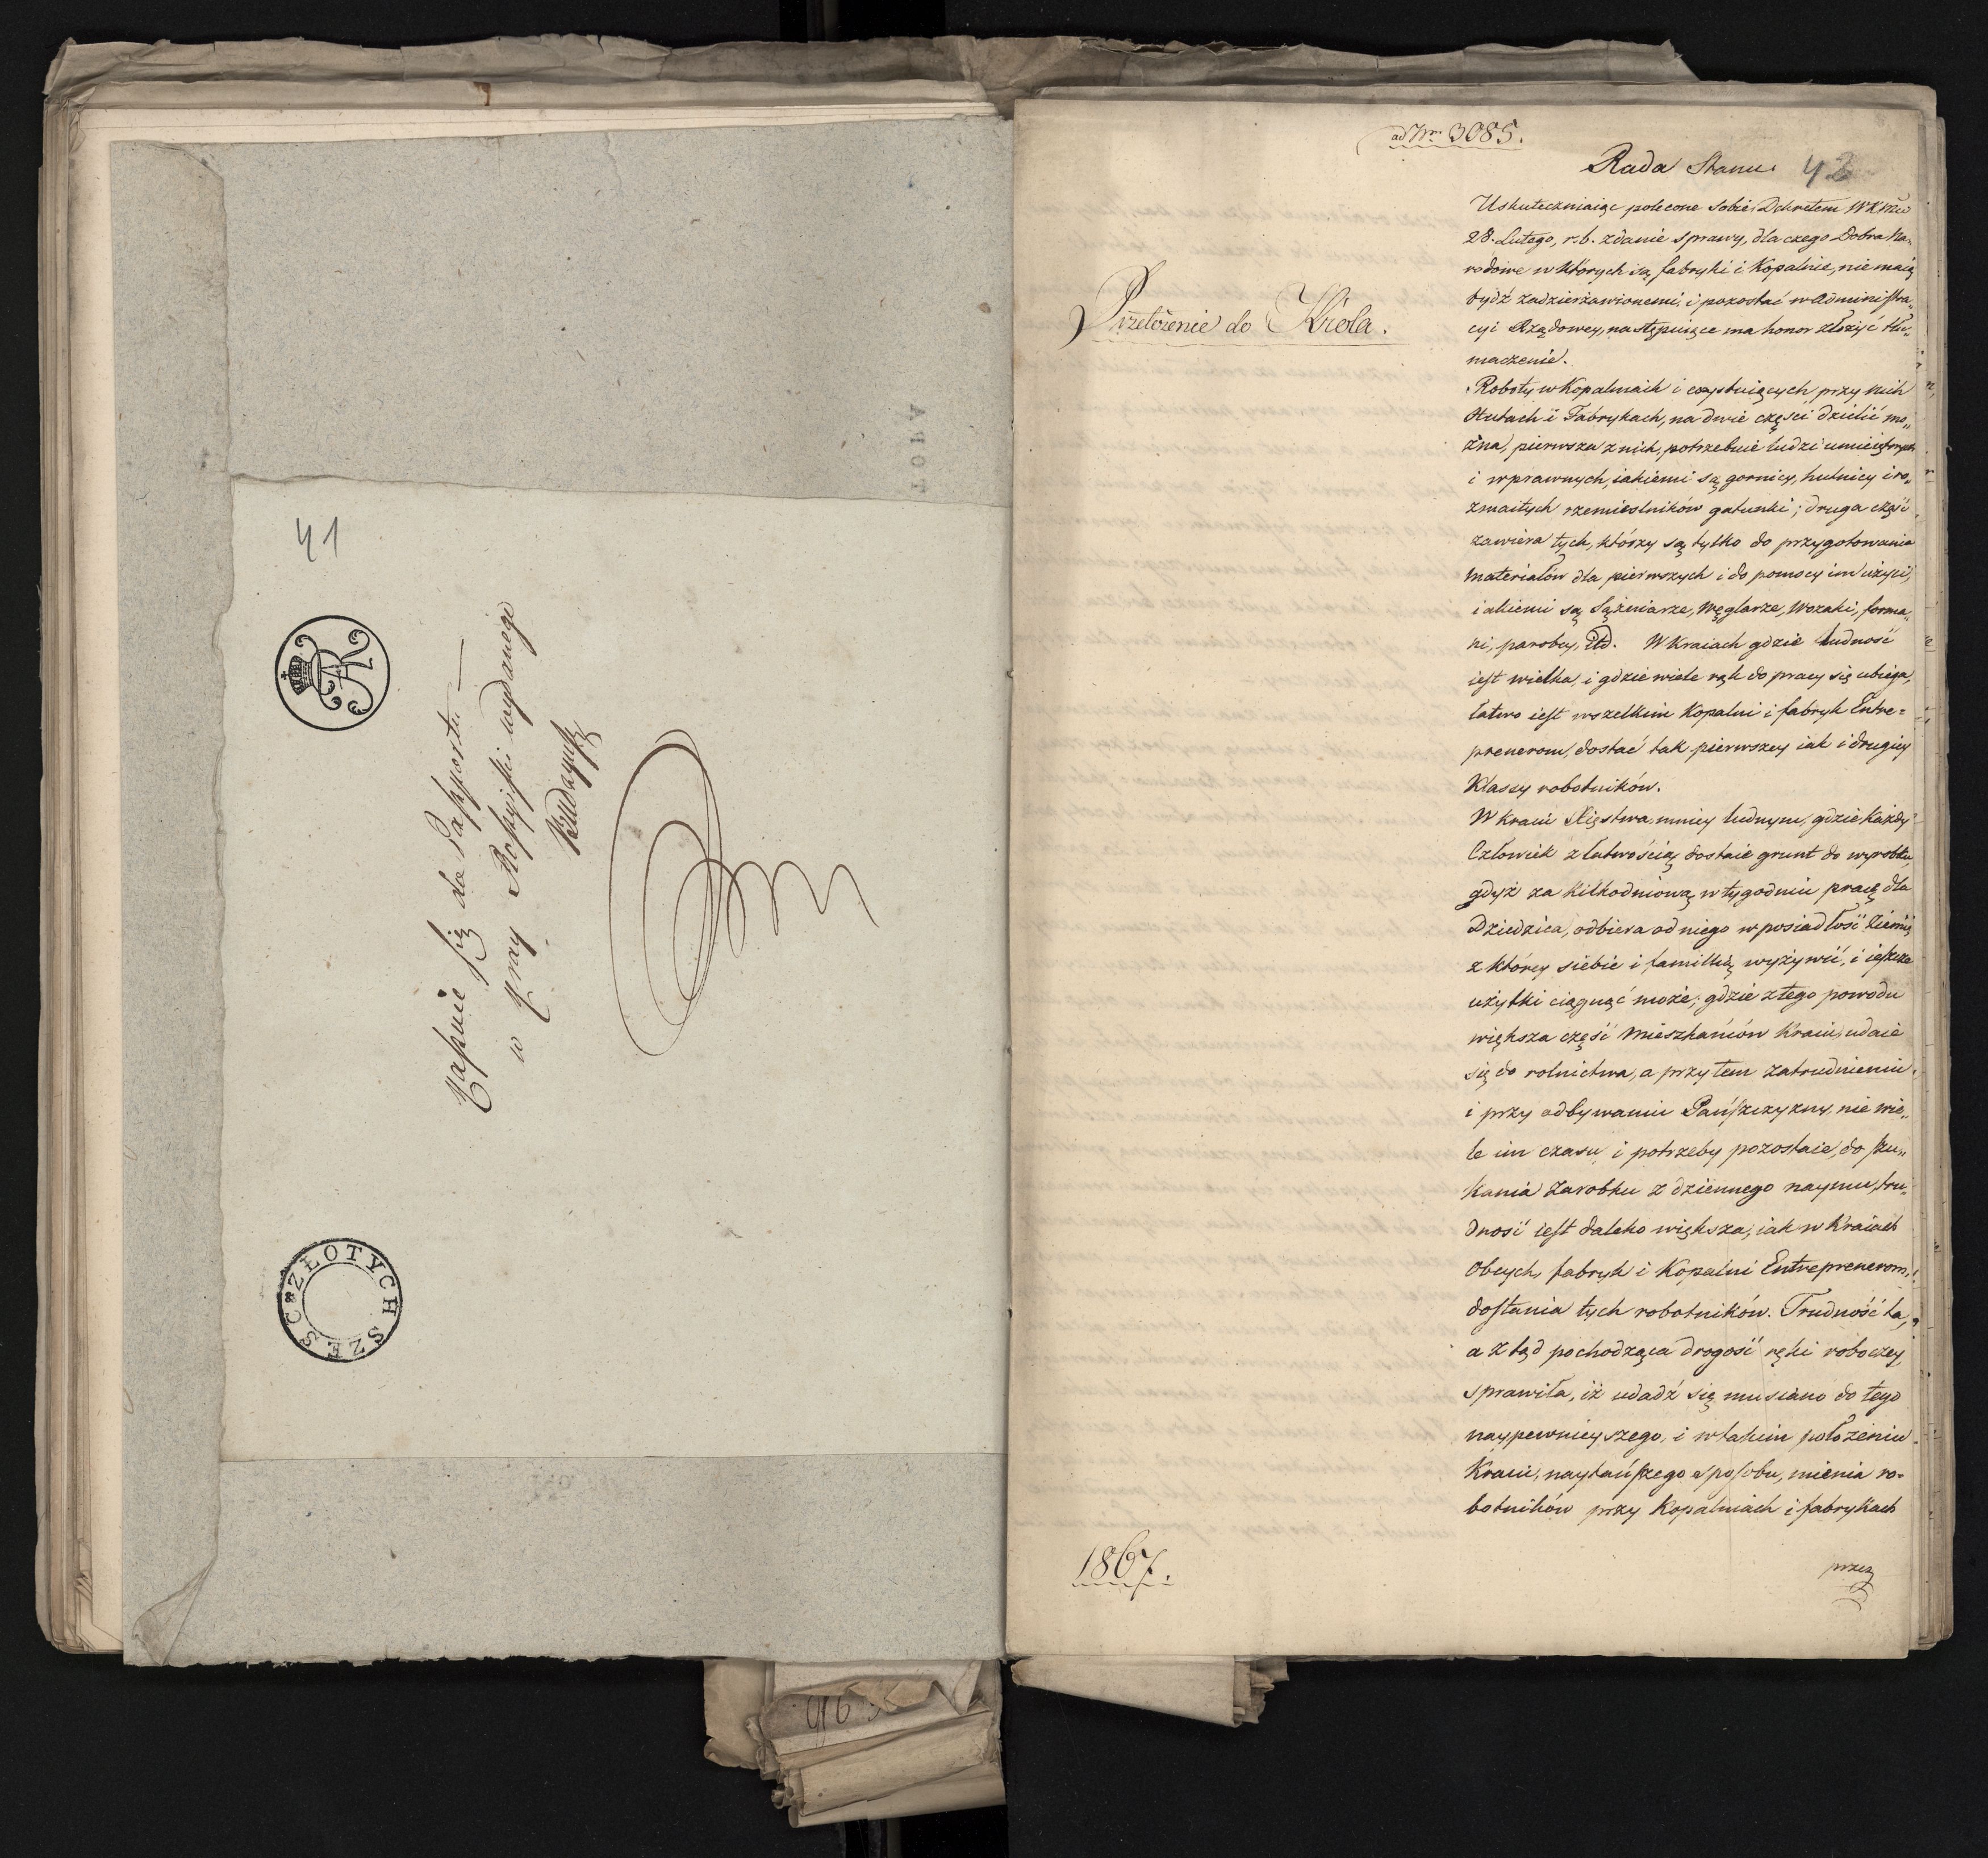 41
FAR
ZŁOTYCH SZEŚĆ
do Passportu —
w Kray Rossyiski wydanego
ad Nrm 3085.
Rada Stanu. 42
Przełożenie do Króla.
Uskuteczniaiąc polecone sobie Dekretem WKMci
28. Lutego, r. b. zdanie sprawy, dla czego Dobra Na„
rodowe w których są fabryki i Kopalnie, nie maią
bydź zadzierżawionemi, i pozostać w Administra„
cyi Rządowey, następuiące ma honor złożyć tłu„
maczenie.
Roboty w Kopalniach i exystuiących przy nich
Hutach i Fabrykach, na dwie części dzielić mo„
żna, pierwsza z nich, potrzebuie ludzi umieiętnych
i wprawnych, iakiemi są gornicy, hutnicy i ro„
zmaitych rzemieslników gatunki; druga część
zawiera tych, którzy są tylko do przygotowania
materiałów dla pierwszych i do pomocy im użyci,
iakiemi są Sążniarze, Węglarze, Wozaki, forma„
ni, parobcy, itd. W Kraiach gdzie ludność
iest wielka, i gdzie wiele rąk do pracy się ubiega,
łatwo iest wszelkim Kopalni i fabryk Entre=
prenerom, dostać tak pierwszey iak i drugiey
Klassy robotników.
W kraiu Xięstwa, mniey ludnym, gdzie każdy
Człowiek z łatwością dostaie grunt do wyrobku,
gdyż za kilkodniową w tygodniu pracę dla
Dziedzica, odbiera od niego w posiadłość Ziemię
z którey siebie i familiią wyżywić, i ieszcze
użytki ciągnąć może; gdzie z tego powodu
większa część Mieszkańców Kraiu, udaie
się do rolnictwa, a przy tem zatrudnieniu
i przy odbywaniu Pańszczyzny, nie wie„
le im czasu i potrzeby pozostaie, do szu„
kania zarobku z dziennego naymu, tru„
dność iest daleko większa, iak w Kraiach
Obcych, fabryk i Kopalni Entreprenerom,
dostania tych robotników. Trudność ta,
a ztąd pochodząca drogość ręki roboczey,
sprawiła, iż udadź się musiano do tego
naypewnieyszego, i w takim położeniu
Kraiu, naytańszego sposobu, mienia ro„
botników przy Kopalniach i fabrykach
przez
1867.